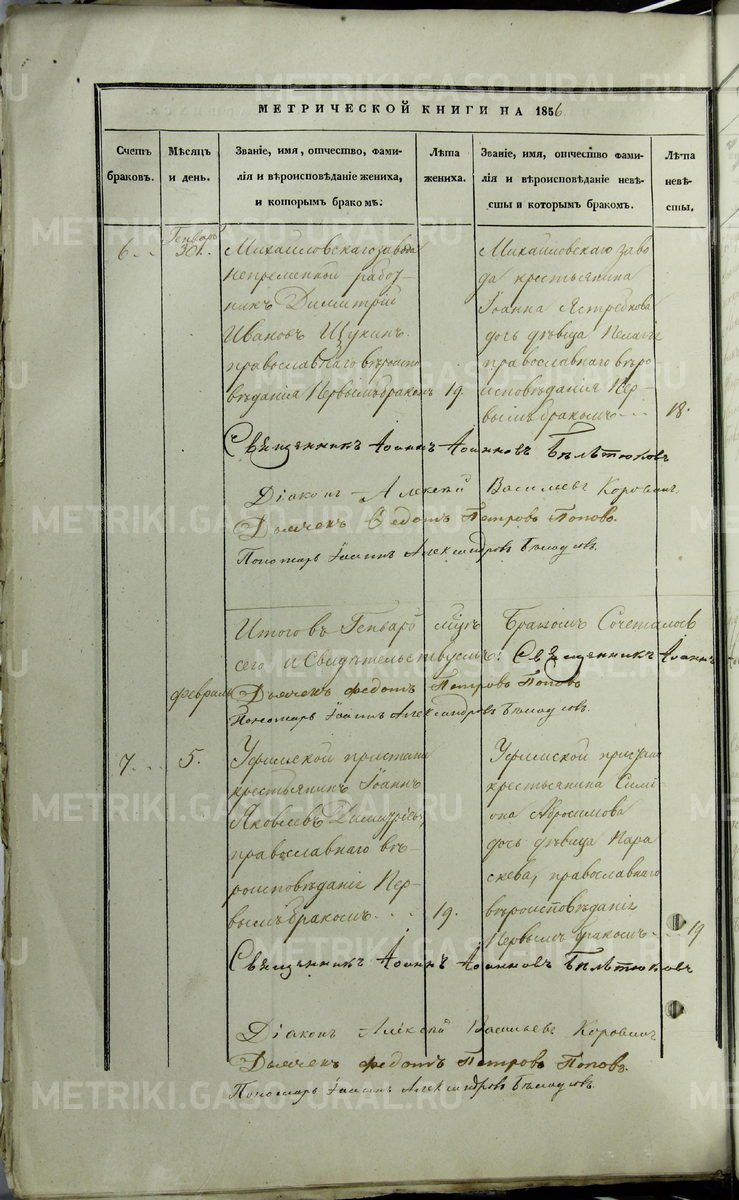 МЕТРИЧЕСКОЙ КНИГИ НА 1856
Счетъ браковъ.
Мѣсяцъ и день.
Званіе, имя, отчество, фами-
лія и вѣроисповѣданіе жениха,
и которымъ бракомъ.
Лѣта жениха.
Званіе, имя, отчество фами
лія и вѣроисповѣданіе невѣ-
сты и которымъ бракомъ.
Лѣта невѣ-
сты.
6
Генварь
30
Михайловскаго завода
непременной работ-
никъ Димитрій
Ивановъ Щукинъ
православнаго вѣроиспо
вѣданія первымъ бракомъ
19.
Михайловскаго заво
да крестьянина
Іоанна Ястребкова
дочь дѣвица Пелагія
православнаго вѣро
исповѣданія пер-
вымъ бракомъ
18.
Священникъ Іоаннъ Іоанновъ
Діаконъ Алексѣй Васильевъ Коровинъ
Дьячекъ Федотъ Петровъ Поповъ.
Пономарь Іоаннъ Александровъ
Итого въ Генварѣ мцѣ Бракомъ Сочеталось
сего и Свидѣтельствуемъ: Священникъ Іоаннъ
февраль
Дьячекъ Федотъ Петровъ Поповъ
Пономарь Іоаннъ Александровъ
7
5.
Уфимской пристани
крестьянинъ Іоаннъ
Яковлевъ
православнаго вѣ-
роисповѣданія пер-
вымъ бракомъ
19.
Уфимской пристани
крестьянина Симе
она Абросимова
дочь дѣвица Пара
скева, православнаго
вѣроисповѣданія
первымъ бракомъ
19
Священникъ Іоаннъ Іоанновъ
Діаконъ Алексѣй Васильевъ Коровинъ
Дьячекъ Федотъ Петровъ Поповъ.
Пономарь Іоаннъ Александровъ
METRIKI.GASO-URAL.RU